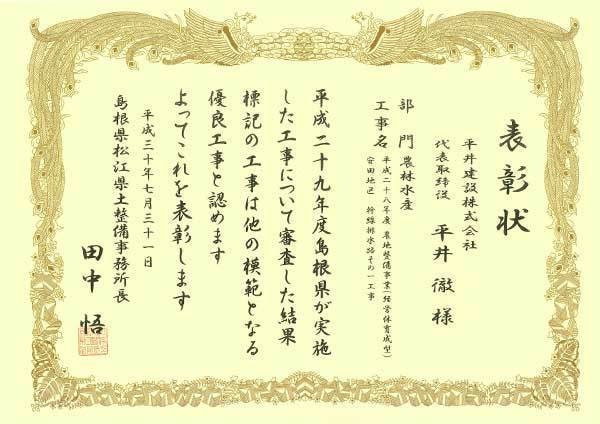 表彰状
平井建設株式会社
代表取締役 平井 徹 様
部門 農林水産
工事名 平成二十八年度 農地整備事業(経営体育成型)
安田地区 幹線排水路その一工事
平成二十九年度島根県が実施
した工事について審査した結果
標記の工事は他の模範となる
優良工事と認めます
よってこれを表彰します
平成三十年七月三十一日
島根県松江県土整備事務所長
田中 悟